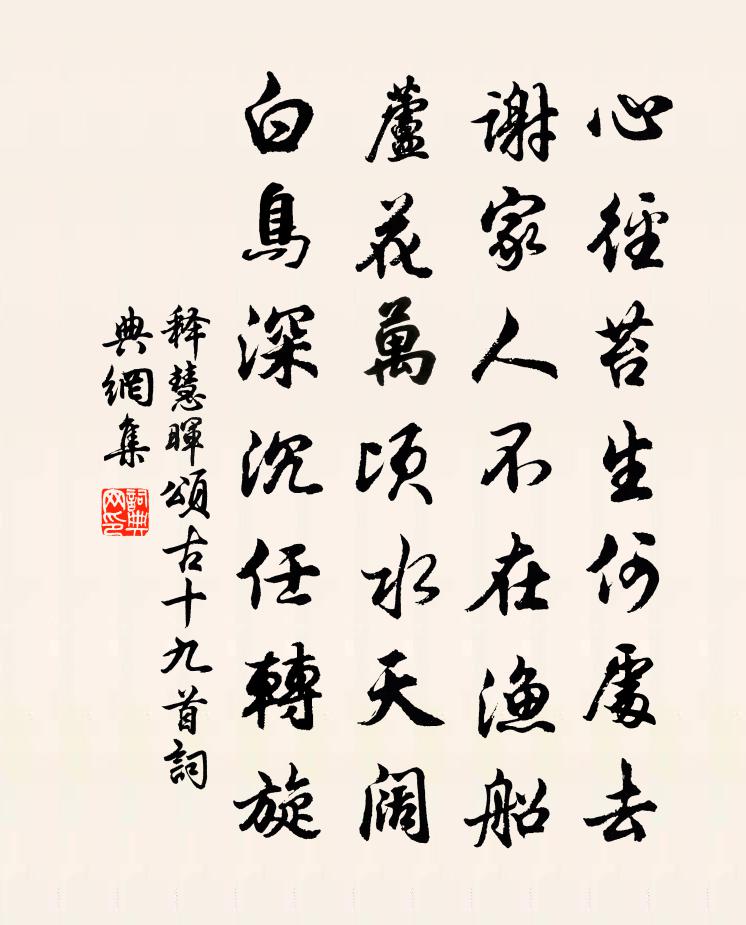 心徑苔生何處去
謝家人不在漁船
蘆花萬頃水天闊
白鳥深沉任轉旋
释慧暉頌古十九首詞
典網集
詞典
网印